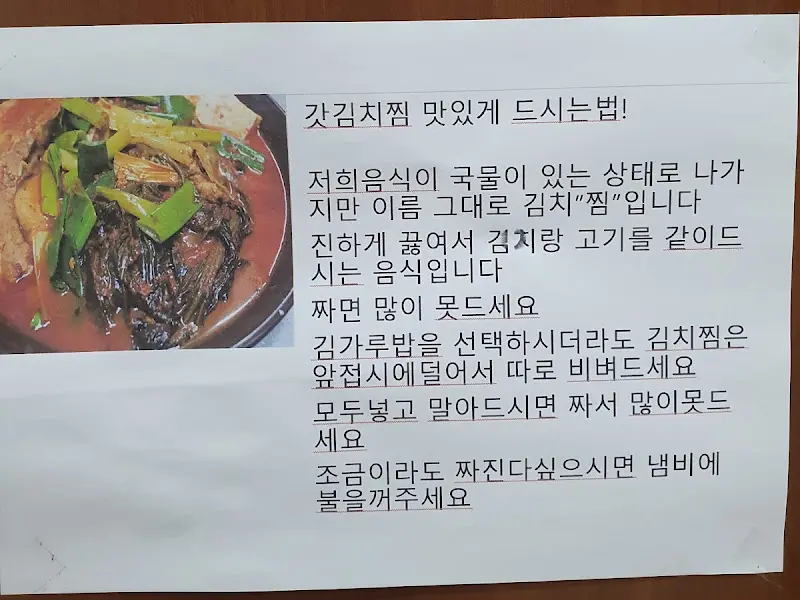 갓김치찜 맛있게 드시는법!
저희음식이 국물이 있는 상태로 나가
지만 이름 그대로 김치"찜"입니다
진하게 끓여서 김치랑 고기를 같이드
시는 음식입니다
짜면 많이 못드세요
김가루밥을 선택하시더라도 김치찜은
앞접시에덜어서 따로 비벼드세요
모두넣고 말아드시면 짜서 많이못드
세요
조금이라도 짜진다싶으시면 냄비에
불을꺼주세요